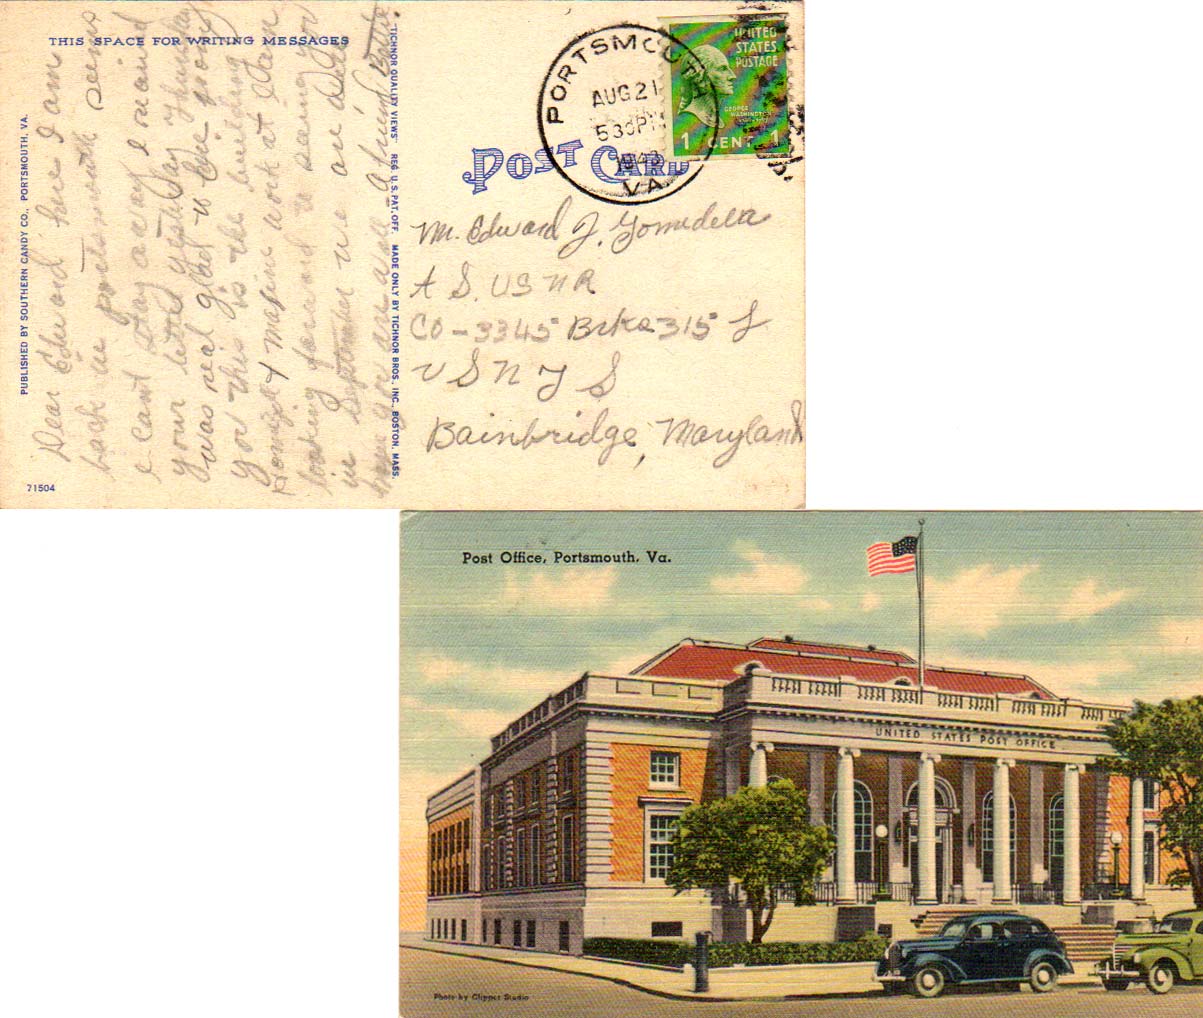 THIS SPACE FOR WRITING MESSAGES
PUBLISHED BY SOUTHERN CANDY CO., PORTSMOUTH, VA.
71504
Dear Edward here I am
back in portsmouth seems
I cant stay away I received
your letter yesterday thursday
was real glad to
you this is the building
& maxine work at I am
looking forward to seeing you
in September we are all
you are all
TICHNOR QUALITY VIEWS REG. U.S. PAT. OFF. MADE ONLY BY TICHNOR BROS., INC., BOSTON, MASS.
POST CARD
PORTSMOUTH
AUG 21
530 PM
1943
VA.
UNITED
STATES
POSTAGE
GEORGE
WASHINGTON
1 CENT 1
Mr. Edward J.
A S. USNR
CO - 3345 315
U S N T S
Bainbridge, Maryland
Post Office, Portsmouth, Va.
UNITED STATES POST OFFICE
Photo by Clipper Studio